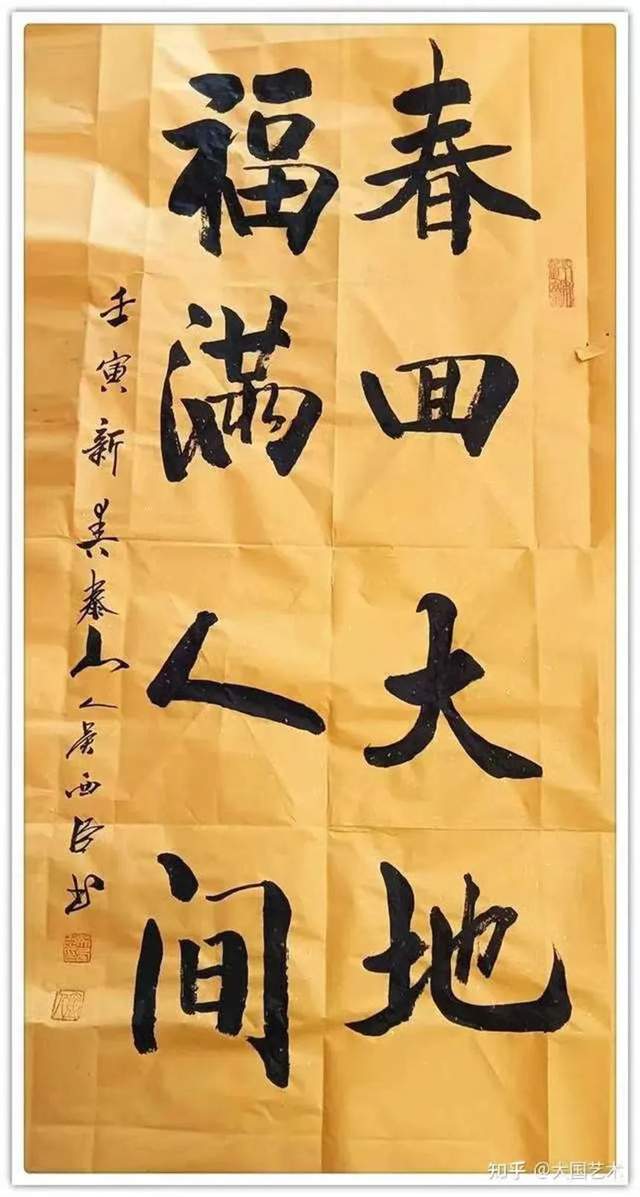 春回大地
福满人间
壬寅新春泰山人吴西臣书
知乎 @大国艺术